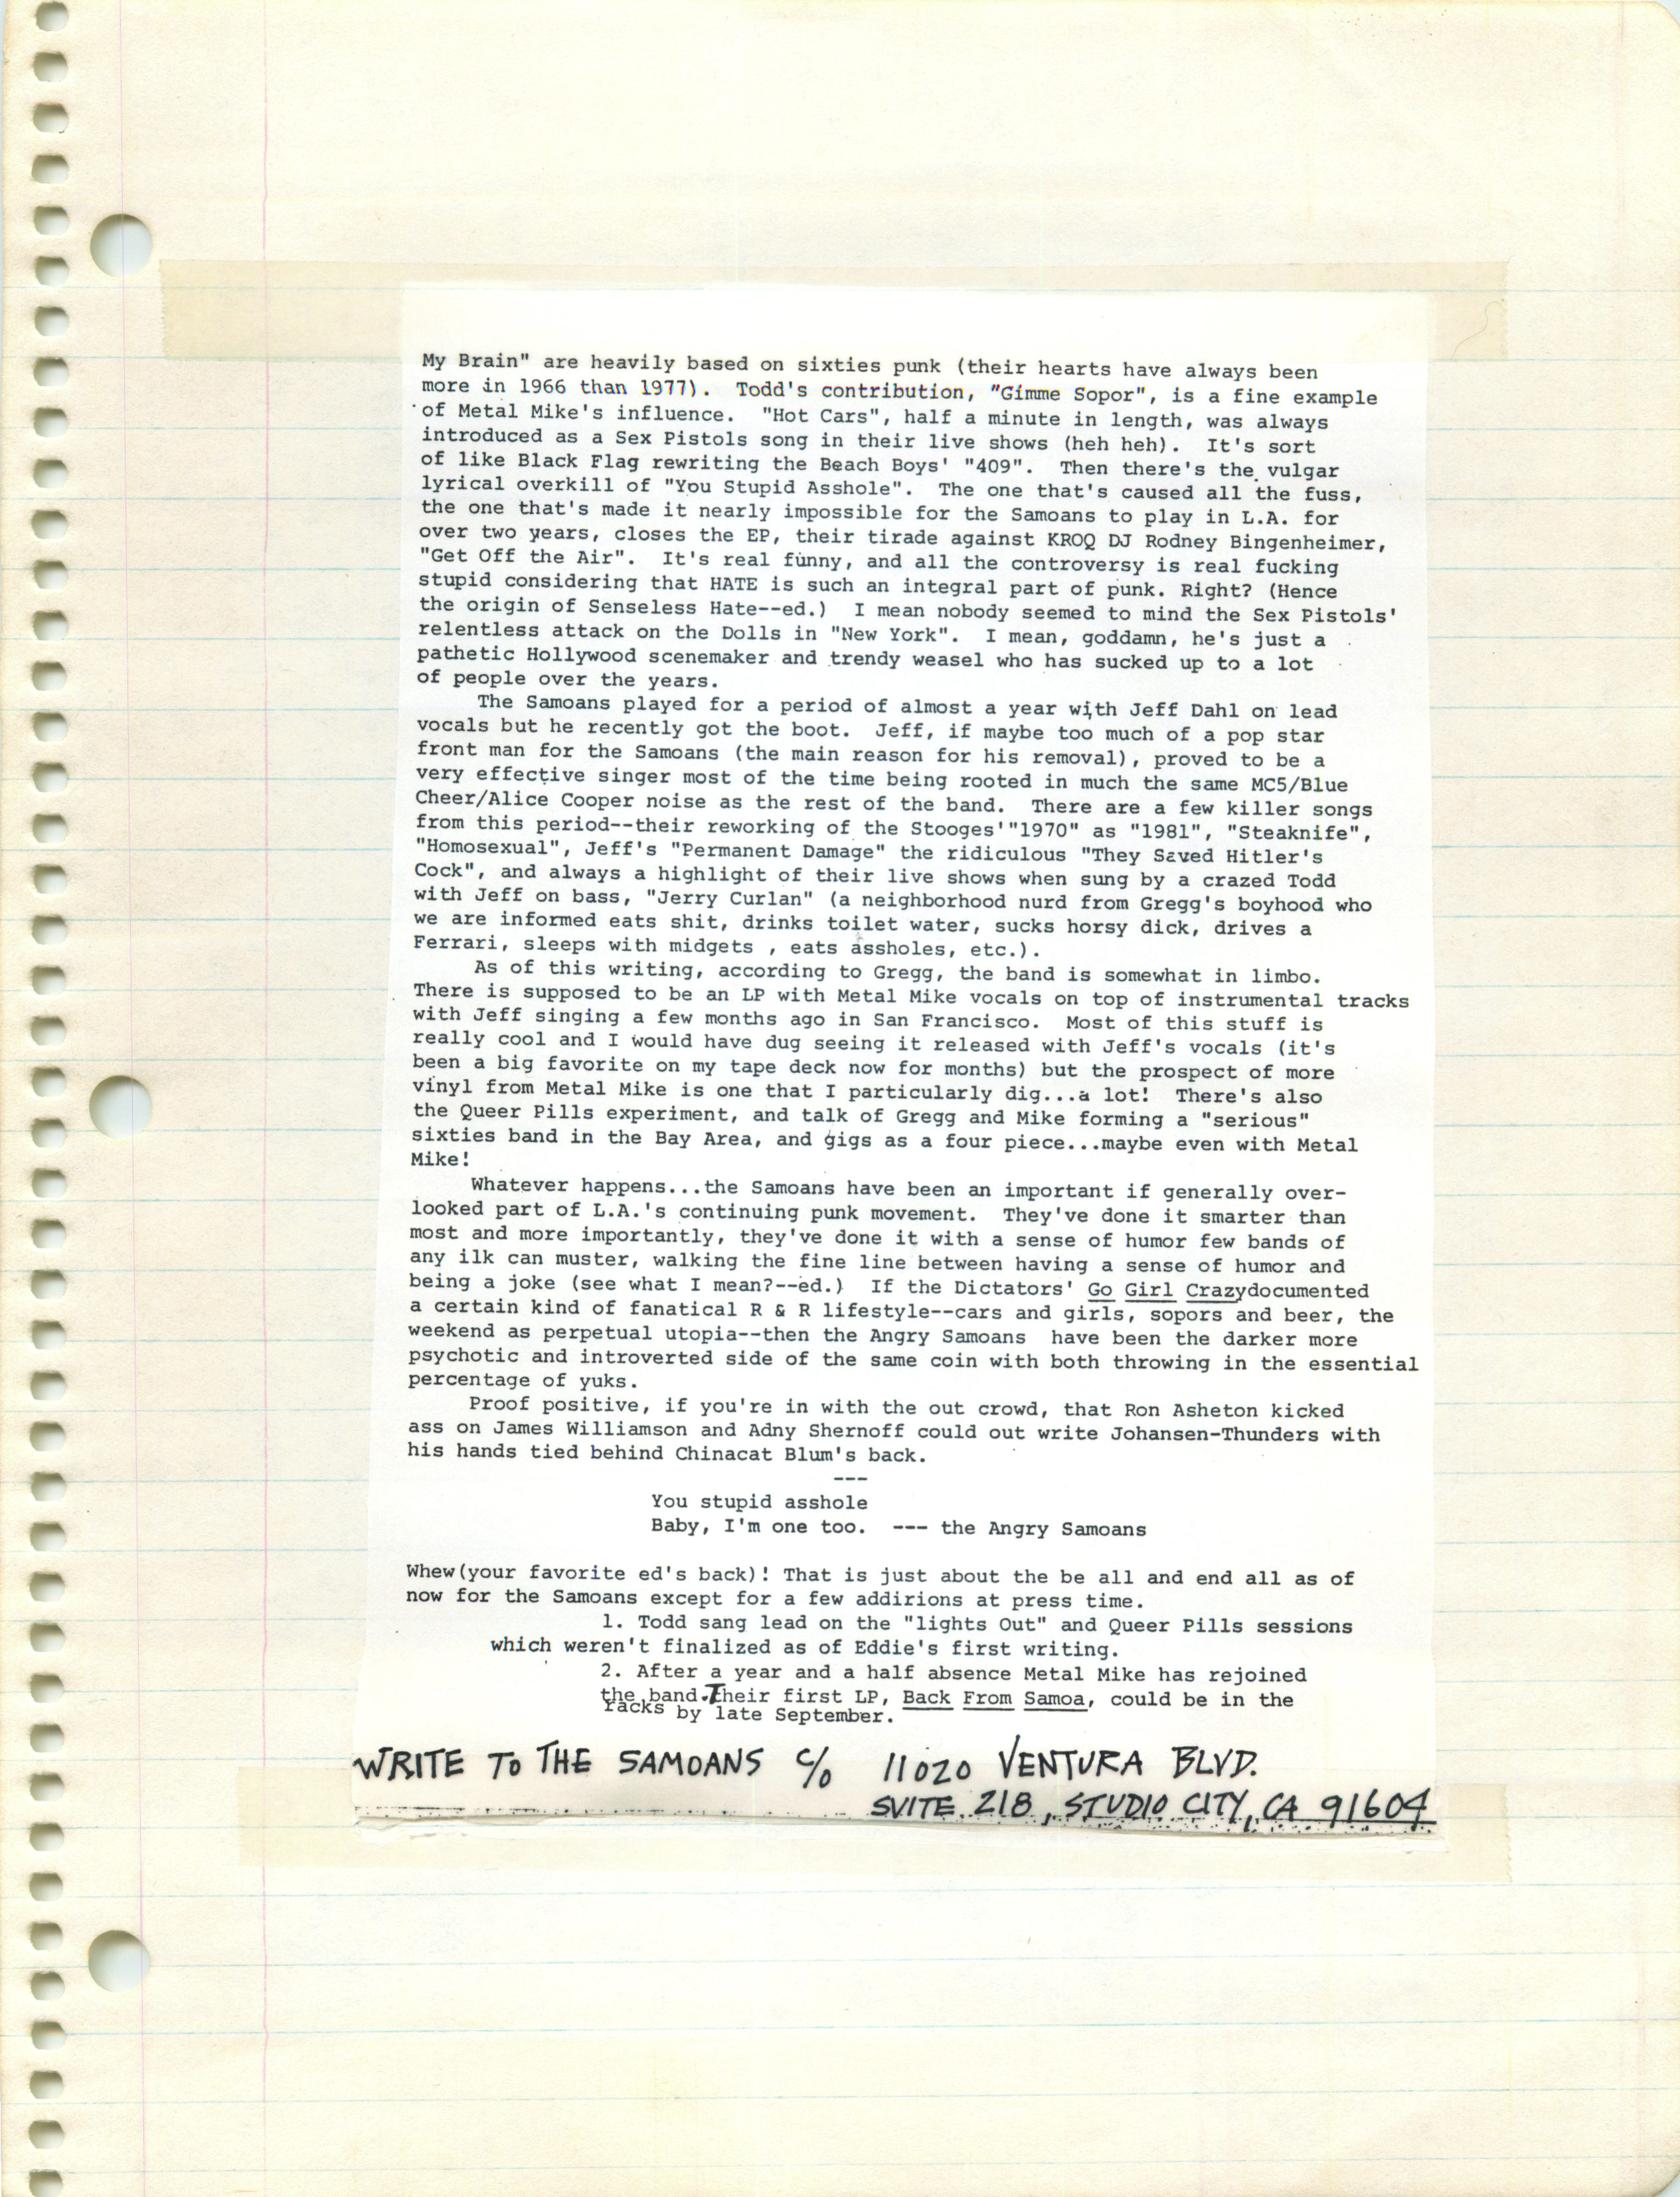 My Brain" are heavily based on sixties punk (their hearts have always been
more in 1966 than 1977).  Todd's contribution, "Gimme Sopor", is a fine example
of Metal Mike's influence.  "Hot Cars", half a minute in length, was always
introduced as a Sex Pistols song in their live shows (heh heh).  It's sort
of like Black Flag rewriting the Beach Boys' "409".  Then there's the vulgar
lyrical overkill of "You Stupid Asshole".  The one that's caused all the fuss,
the one that's made it nearly impossible for the Samoans to play in L.A. for
over two years, closes the EP, their tirade against KROQ DJ Rodney Bingenheimer,
"Get Off the Air".  It's real funny, and all the controversy is real fucking
stupid considering that HATE is such an integral part of punk. Right? (Hence
the origin of Senseless Hate--ed.)  I mean nobody seemed to mind the Sex Pistols'
relentless attack on the Dolls in "New York".  I mean, goddamn, he's just a
pathetic Hollywood scenemaker and trendy weasel who has sucked up to a lot
of people over the years.
The Samoans played for a period of almost a year with Jeff Dahl on lead
vocals but he recently got the boot.  Jeff, if maybe too much of a pop star
front man for the Samoans (the main reason for his removal), proved to be a
very effective singer most of the time being rooted in much the same MC5/Blue
Cheer/Alice Cooper noise as the rest of the band.  There are a few killer songs
from this period--their reworking of the Stooges'"1970" as "1981", "Steaknife",
"Homosexual", Jeff's "Permanent Damage" the ridiculous "They Saved Hitler's
Cock", and always a highlight of their live shows when sung by a crazed Todd
with Jeff on bass, "Jerry Curlan" (a neighborhood nurd from Gregg's boyhood who
we are informed eats shit, drinks toilet water, sucks horsy dick, drives a
Ferrari, sleeps with midgets , eats assholes, etc.).
As of this writing, according to Gregg, the band is somewhat in limbo.
There is supposed to be an LP with Metal Mike vocals on top of instrumental tracks
with Jeff singing a few months ago in San Francisco.  Most of this stuff is
really cool and I would have dug seeing it released with Jeff's vocals (it's
been a big favorite on my tape deck now for months) but the prospect of more
vinyl from Metal Mike is one that I particularly dig...a lot!  There's also
the Queer Pills experiment, and talk of Gregg and Mike forming a "serious"
sixties band in the Bay Area, and gigs as a four piece...maybe even with Metal
Mike!
Whatever happens...the Samoans have been an important if generally over-
looked part of L.A.'s continuing punk movement.  They've done it smarter than
most and more importantly, they've done it with a sense of humor few bands of
any ilk can muster, walking the fine line between having a sense of humor and
being a joke (see what I mean?--ed.)  If the Dictators' Go Girl Crazydocumented
a certain kind of fanatical R & R lifestyle--cars and girls, sopors and beer, the
weekend as perpetual utopia--then the Angry Samoans  have been the darker more
psychotic and introverted side of the same coin with both throwing in the essential
percentage of yuks.
Proof positive, if you're in with the out crowd, that Ron Asheton kicked
ass on James Williamson and Adny Shernoff could out write Johansen-Thunders with
his hands tied behind Chinacat Blum's back.
---
You stupid asshole
Baby, I'm one too.  --- the Angry Samoans
Whew(your favorite ed's back)! That is just about the be all and end all as of
now for the Samoans except for a few addirions at press time.
1. Todd sang lead on the "lights Out" and Queer Pills sessions
which weren't finalized as of Eddie's first writing.
2. After a year and a half absence Metal Mike has rejoined
the band. Their first LP, Back From Samoa, could be in the
racks by late September.
WRITE TO THE SAMOANS C/O 11020 VENTURA BLVD.
SUITE 218, STUDIO CITY, CA 91604